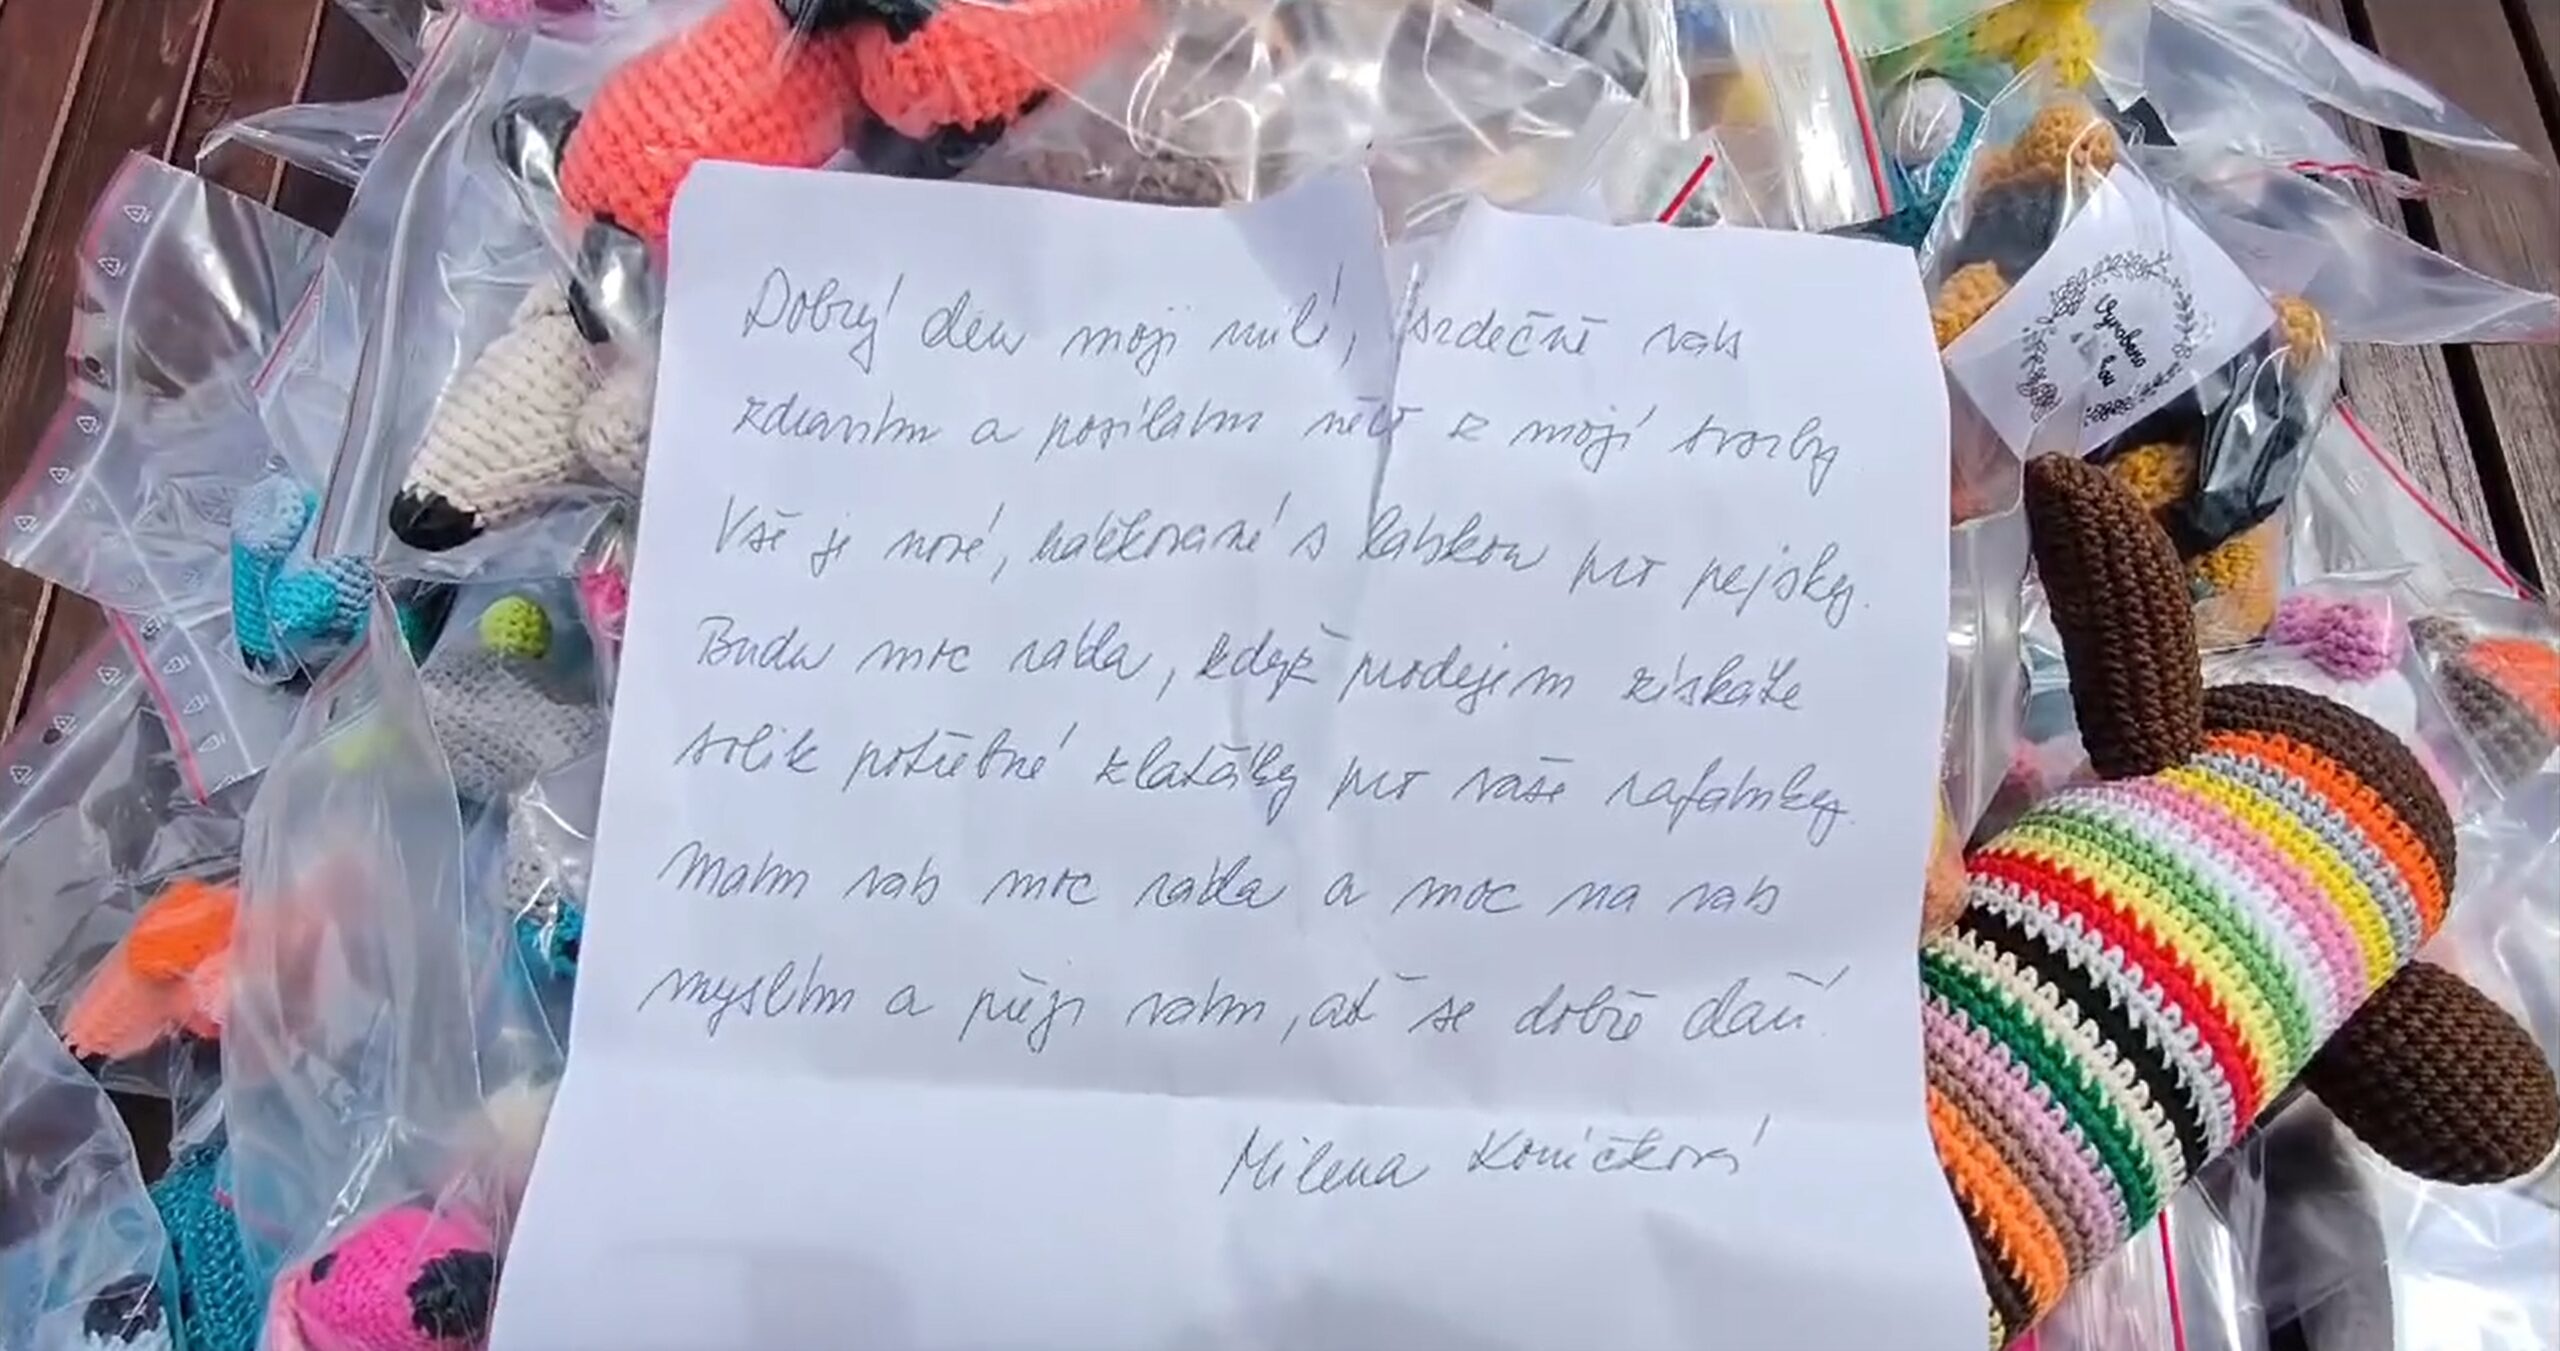 Dobrý den moji milí, srdečně vás
zdravím a posílám něco z mojí tvorby
Vše je nové, háčkované s láskou pro pejsky.
Budu moc ráda, když prodejem získáte
tolik potřebné zlaťáky pro vaše rafánky.
Mám vás moc ráda a moc na vás
myslím a přeji vám, ať se dobře daří.
Milena Koníčková
Vyrobeno
s láskou